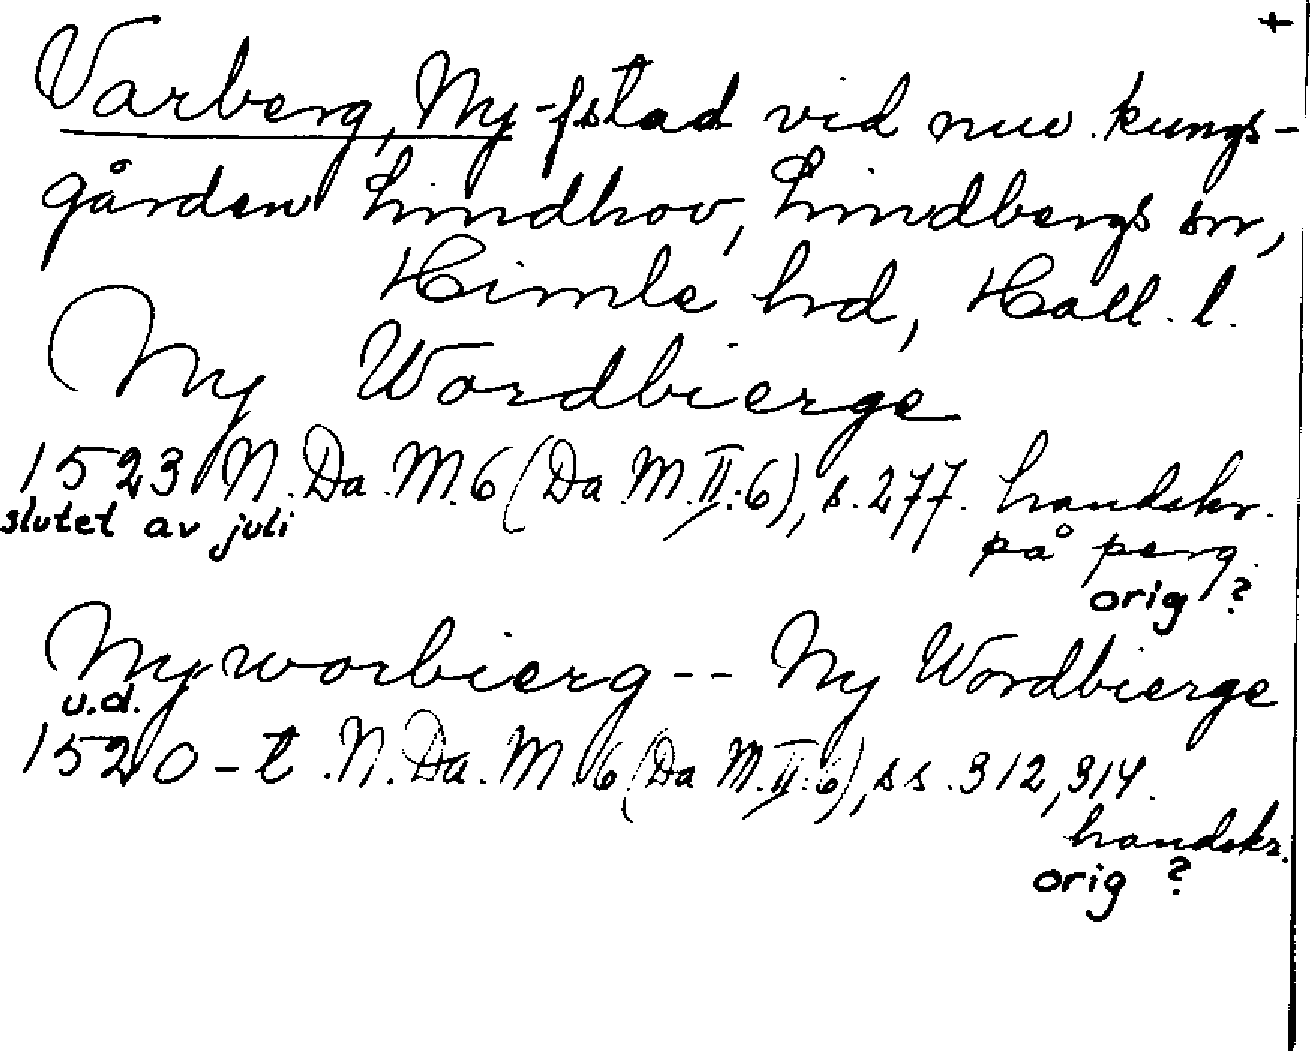 +
Varberg, Ny- f stad vid nuv. kungs-
gården Lindhov, Lindbergs sn,
Himle hrd, Hall. l.
Ny Wordbierge
1523 N. Da. M. 6 (Da M. II:6), s. 277. handskr.
slutet av juli
på perg.
orig ?
Ny worbierg -- Ny Wordbierge
u.d.
1520-t. N. Da. M. 6 (Da M. II:6), ss. 312, 314.
handskr.
orig ?